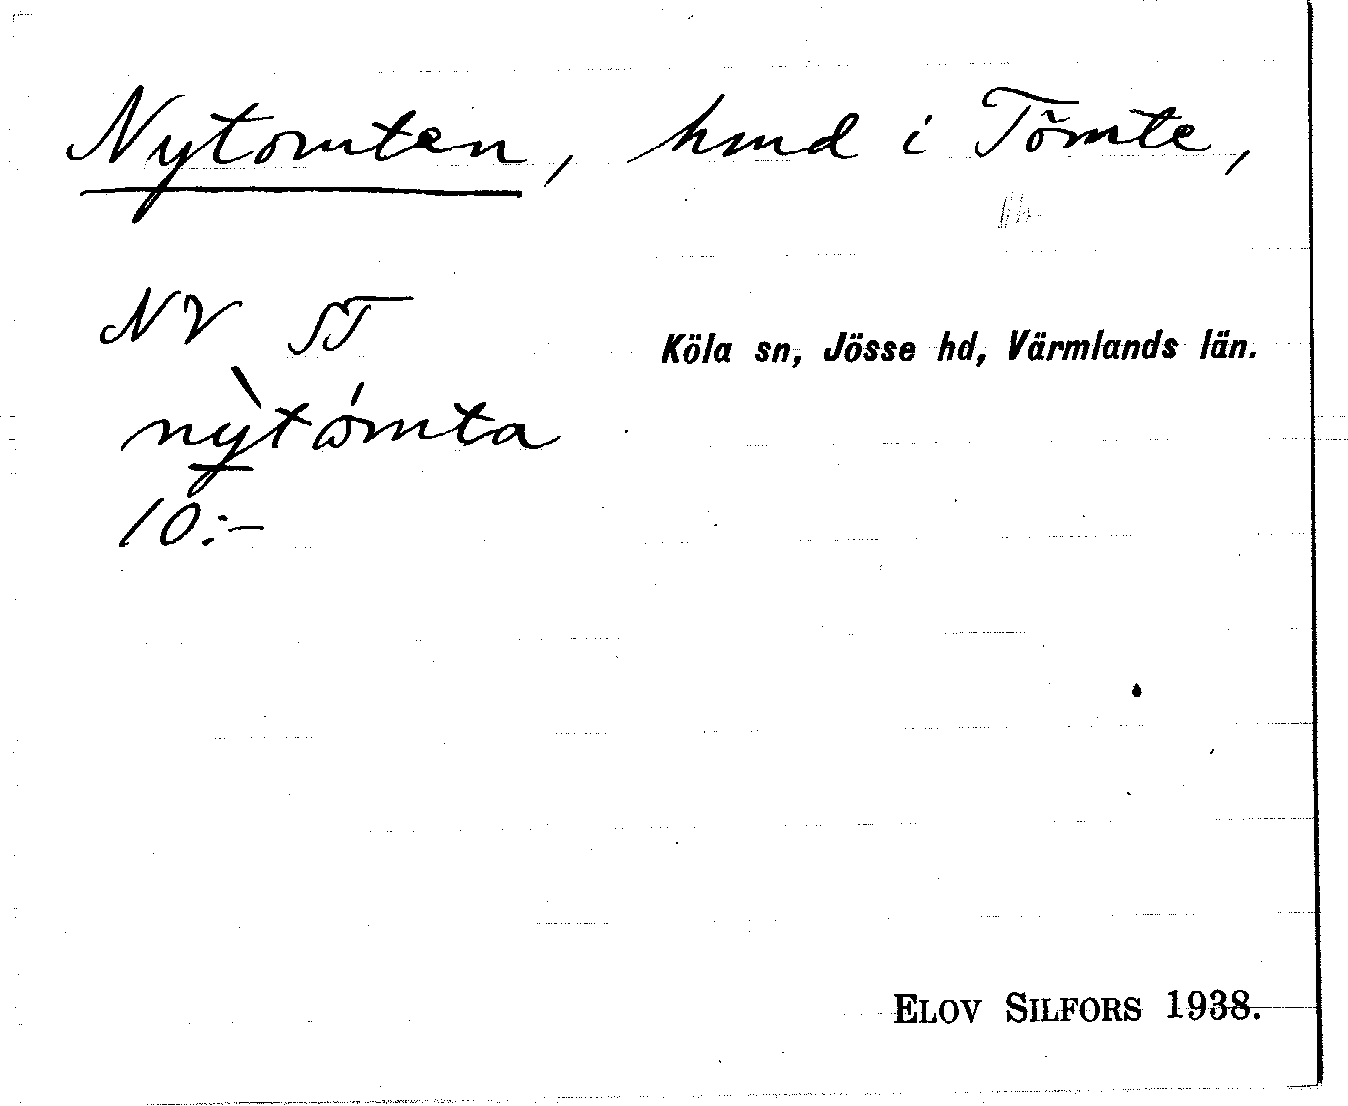 Nytomten, hmd i Tömte,
NV ST
Köla sn, Jösse hd, Värmlands län.
nỳtómta
10:-
ELOV SILFORS 1938.